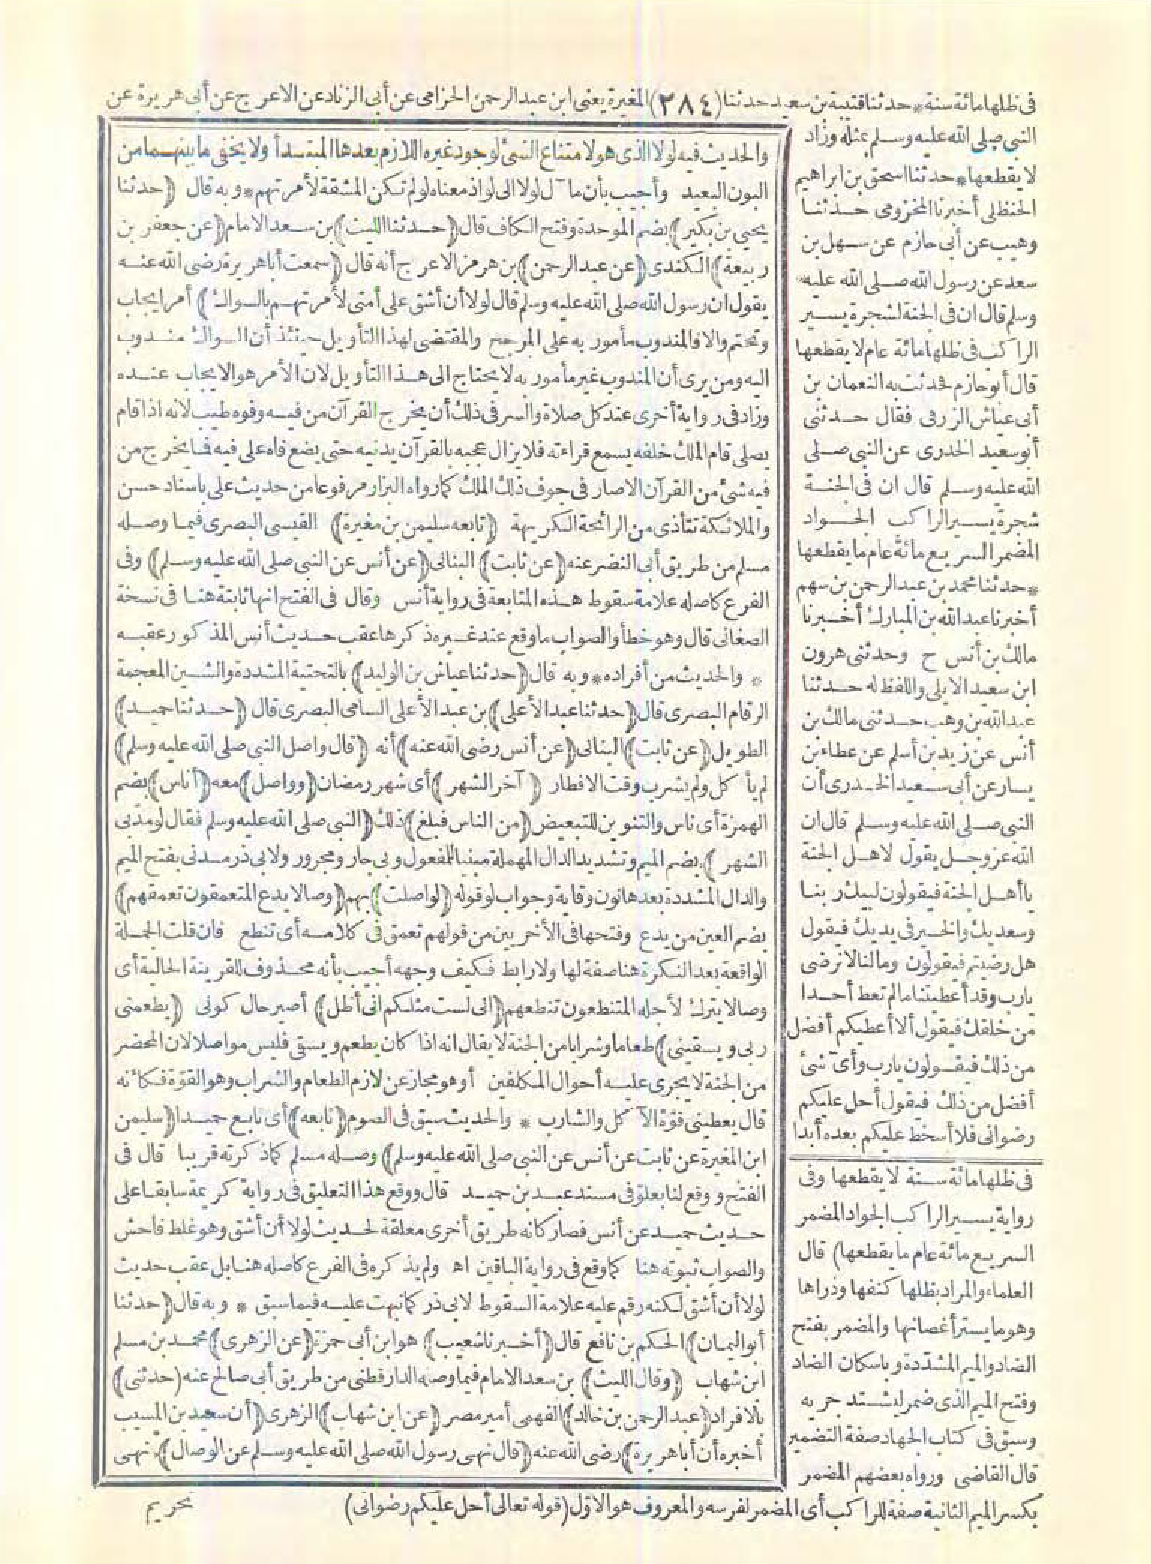 في ظلها مائة سنة * حدثنا قتيبة بن سعيد حدثنا (٢٨٤) المغيرة يعني ابن عبد الرحمن الحزامي عن أبي الزناد عن الاعرج عن أبي هريرة عن
النبي صلى الله عليه وسلم بمثله وزاد
لا يقطعها * حدثنا اسحق بن ابراهيم
الحنظلي أخبرنا المخزومي حدثنا
وهيب عن أبي حازم عن سهل بن
سعد عن رسول الله صلى الله عليه
وسلم قال ان في الجنة لشجرة يسير
الراكب في ظلها مائة عام لا يقطعها
قال أبو حازم فحدثت به النعمان بن
أبي عياش الزرقي فقال حدثني
أبو سعيد الخدري عن النبي صلى
الله عليه وسلم قال ان في الجنة
شجرة يسير الراكب الجواد
المضمر السريع مائة عام ما يقطعها
* حدثنا محمد بن عبد الرحمن بن سهم
أخبرنا عبد الله بن المبارك أخبرنا
مالك بن أنس ح وحدثني هرون
ابن سعيد الايلي واللفظ له حدثنا
عبد الله بن وهب حدثني مالك بن
أنس عن زيد بن أسلم عن عطاء بن
يسار عن أبي سعيد الخدري أن
النبي صلى الله عليه وسلم قال ان
الله عز وجل يقول لاهل الجنة
يا أهل الجنة فيقولون لبيك ربنا
وسعديك والخير في يديك فيقول
هل رضيتم فيقولون ومالنا لا نرضى
يارب وقد أعطيتنا ما لم تعط أحدا
من خلقك فيقول ألا أعطيكم أفضل
من ذلك فيقولون يارب وأى شئ
أفضل من ذلك فيقول أحل عليكم
رضواني فلا أسخط عليكم بعده أبدا
في ظلها مائة سنة لا يقطعها وفي
رواية يسير الراكب الجواد المضمر
السريع مائة عام ما يقطعها) قال
العلماء والمراد بظلها كنفها وذراها
وهو ما يستر أغصانها والمضمر بفتح
الضاد والميم المشددة وباسكان الضاد
وفتح الميم الذي ضمر ليشتد جريه
وسبق في كتاب الجهاد صفة التضمير
قال القاضي ورواه بعضهم المضمر
بكسر الميم الثانية صفة للراكب أي المضمر لفرسه والمعروف هو الاول (قوله تعالى أحل عليكم رضواني)
والحديث فيه لولا الذي هو لامتناع الشئ لوجود غيره اللازم بعدها المبتدأ ولا يخفى ما بينهما من
البون البعيد وأجيب بأن مآل لولا الى لو اذ معناه لو لم تكن المشقة لأمرتهم * وبه قال (حدثنا
يحيى بن بكير) بضم الموحدة وفتح الكاف قال (حدثنا الليث) بن سعد الامام (عن جعفر بن
ربيعة) الكندي (عن عبد الرحمن) بن هرمز الاعرج أنه قال (سمعت أبا هريرة رضى الله عنه
يقول ان رسول الله صلى الله عليه وسلم قال لولا أن أشق على أمتي لأمرتهم بالسواك) أمر ايجاب
وتحتم والا فالمندوب مأمور به على المرجح والمقتضى لهذا التأويل حينئذ أن السواك مندوب
اليه ومن يرى أن المندوب غير مأمور به لا يحتاج الى هذا التأويل لان الأمر هو الايجاب عنده
وزاد في رواية أخرى عند كل صلاة والسر في ذلك أن يخرج القرآن من فيه وفوه طيب لانه اذا قام
يصلى قام الملك خلفه يسمع قراءته فلا يزال عجبه بالقرآن يدنيه حتى يضع فاه على فيه فما يخرج من
فيه شئ من القرآن الا صار في جوف ذلك الملك كما رواه البزار مرفوعا من حديث على باسناد حسن
والملائكة تتأذى من الرائحة الكريهة (تابعه سليمن بن مغيرة) القيسي البصري فيما وصله
مسلم من طريق أبي النضر عنه (عن ثابت) البناني (عن أنس عن النبي صلى الله عليه وسلم) وفي
الفرع كاصله علامة سقوط هذه المتابعة في رواية أنس وقال في الفتح انها ثابتة هنا في نسخة
الصغاني قال وهو خطأ والصواب ما وقع عند غيره ذكرها عقب حديث أنس المذكور عقبه
* والحديث من أفراده * وبه قال (حدثنا عياش بن الوليد) بالتحتية المشددة والشين المعجمة
الرقام البصري قال (حدثنا عبد الأعلى) بن عبد الأعلى السامي البصري قال (حدثنا حميد)
الطويل (عن ثابت) البناني (عن أنس رضى الله عنه) أنه (قال واصل النبي صلى الله عليه وسلم)
لم يأكل ولم يشرب وقت الافطار (آخر الشهر) أي شهر رمضان (وواصل) معه (أناس) بضم
الهمزة أي ناس والتنوين للتبعيض (من الناس فبلغ) ذلك (النبي صلى الله عليه وسلم فقال لو مد بي
الشهر) بضم الميم وتشديد الدال المهملة مبنيا للمفعول وبي جار ومجرور ولابي ذر مدني بفتح الميم
والدال المشددة بعدها نون وقاية وجواب لو قوله (لواصلت) بهم (وصالا يدع المتعمقون تعمقهم)
بضم العين من يدع وفتحها في الأخريين من قولهم تعمق في كلامه أي تنطع فان قلت الجملة
الواقعة بعد النكرة هنا صفة لها ولا رابط فكيف وجهه أجيب بأنه محذوف للقرينة الحالية أي
وصالا يترك لأجله المتنطعون تنطعهم (اني لست مثلكم اني أظل) أصير حال كوني (يطعمني
ربي ويسقيني) طعاما وشرابا من الجنة لا يقال انه اذا كان يطعم ويسقى فليس مواصلا لان المحضر
من الجنة لا يجرى عليه أحوال المكلفين أو هو مجاز عن لازم الطعام والشراب وهو القوة فكأنه
قال يعطيني قوة الآكل والشارب * والحديث سبق في الصوم (تابعه) أي تابع حميدا (سليمن
ابن المغيرة عن ثابت عن أنس عن النبي صلى الله عليه وسلم) وصله مسلم كما ذكرته قريبا قال في
الفتح ووقع لنا بعلو في مسند عبد بن حميد قال ووقع هذا التعليق في رواية كريمة سابقا على
حديث حميد عن أنس فصار كانه طريق أخرى معلقة لحديث لولا أن أشق وهو غلط فاحش
والصواب ثبوته هنا كما وقع في رواية الباقين اه ولم يذكره في الفرع كاصله هنا بل عقب حديث
لولا أن أشق لكنه رقم عليه علامة السقوط لابي ذر كما نبهت عليه فيما سبق * وبه قال (حدثنا
أبو اليمان) الحكم بن نافع قال (أخبرنا شعيب) هو ابن أبي حمزة (عن الزهري) محمد بن مسلم
ابن شهاب (وقال الليث) بن سعد الامام فيما وصله الدارقطني من طريق أبي صالح عنه (حدثني)
بالافراد (عبد الرحمن بن خالد) الفهمي أمير مصر (عن ابن شهاب) الزهري (أن سعيد بن المسيب
أخبره أن أبا هريرة) رضى الله عنه (قال نهى رسول الله صلى الله عليه وسلم عن الوصال) نهى
تحريم